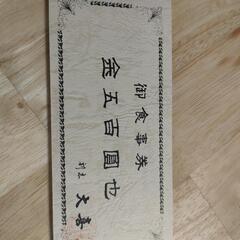 御食事券
金五百圓也
大喜